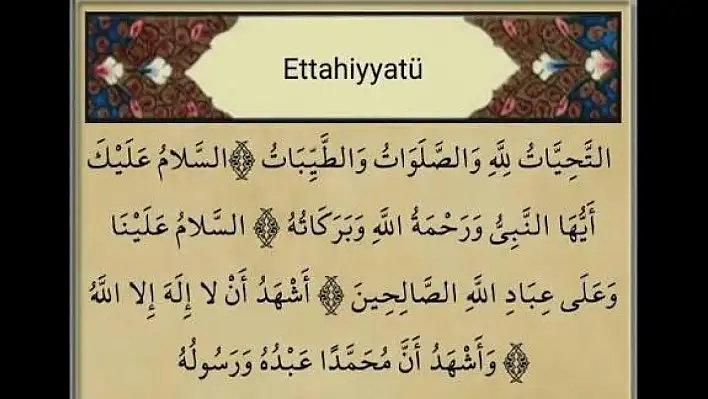 Ettahiyyatü
التَّحِيَّاتُ لِلَّهِ وَالصَّلَوَاتُ وَالطَّيِّبَاتُ ۞ السَّلامُ عَلَيْكَ
أَيُّهَا النَّبِيُّ وَرَحْمَةُ اللَّهِ وَبَرَكَاتُهُ ۞ السَّلامُ عَلَيْنَا
وَعَلَى عِبَادِ اللَّهِ الصَّالِحِينَ ۞ أَشْهَدُ أَنْ لا إِلَهَ إِلا اللَّهُ
۞ وَأَشْهَدُ أَنَّ مُحَمَّدًا عَبْدُهُ وَرَسُولُهُ